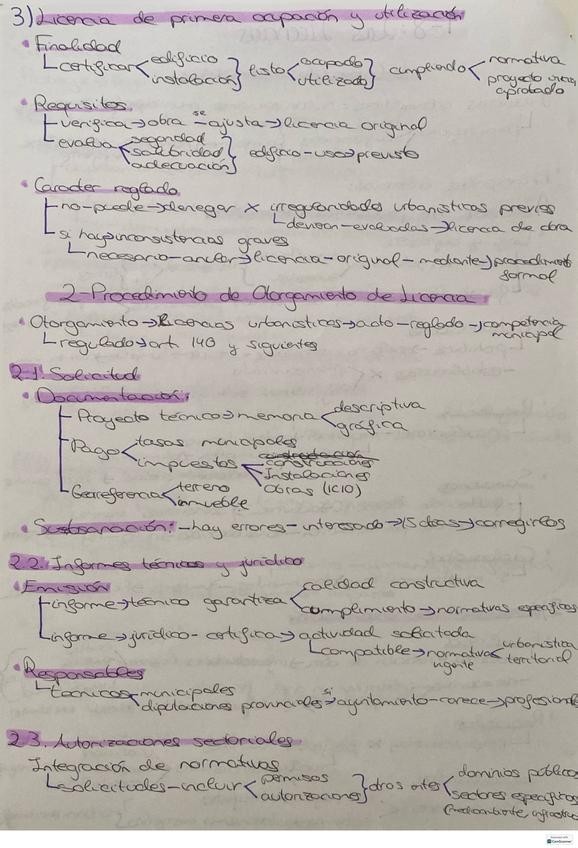 3) Licencia de primera ocupación y utilización
• Finalidad
certificar edificio instalación } listo ocupado utilizado } cumpliendo normativa
proyecto
aprobado
• Requisitos
verifica → obra - se ajusta → licencia original
evalua seguridad salubridad adecuación } edificio - uso → previsto
• Caracter reglado
no - puede → denegar x irregularidades urbanísticas previas
debieron - evaluadas → licencia de obra
si hay → inconsistencias graves
necesario - anular → licencia - original - mediante → procedimiento
formal
2 - Procedimiento de Otorgamiento de Licencia
• Otorgamiento → Licencias urbanísticas → acto - reglado → competencia
municipal
regulado → art. 140 y siguientes
2.1. Solicitud
• Documentación:
Proyecto técnico → memoria descriptiva
gráfica
Pago tasas municipales
impuestos construcciones
Instalaciones
Obras (ICIO)
Georeferencia terreno
inmueble
• Subsanación: - hay errores - interesado → 15 días → corregirlos
2.2. Informes técnicos y jurídico
• Emisión calidad constructiva
informe → técnico garantiza
cumplimiento → normativas específicas
informe → jurídico - certifica → actividad solicitada
compatible → normativa urbanística
vigente territorial
• Responsables
técnicos municipales
diputaciones provinciales → si ayuntamiento - carece → profesional
2.3. Autorizaciones sectoriales
Integración de normativas
solicitudes - incluir permisos
autorizaciones } otros dominios público
sectores específicos